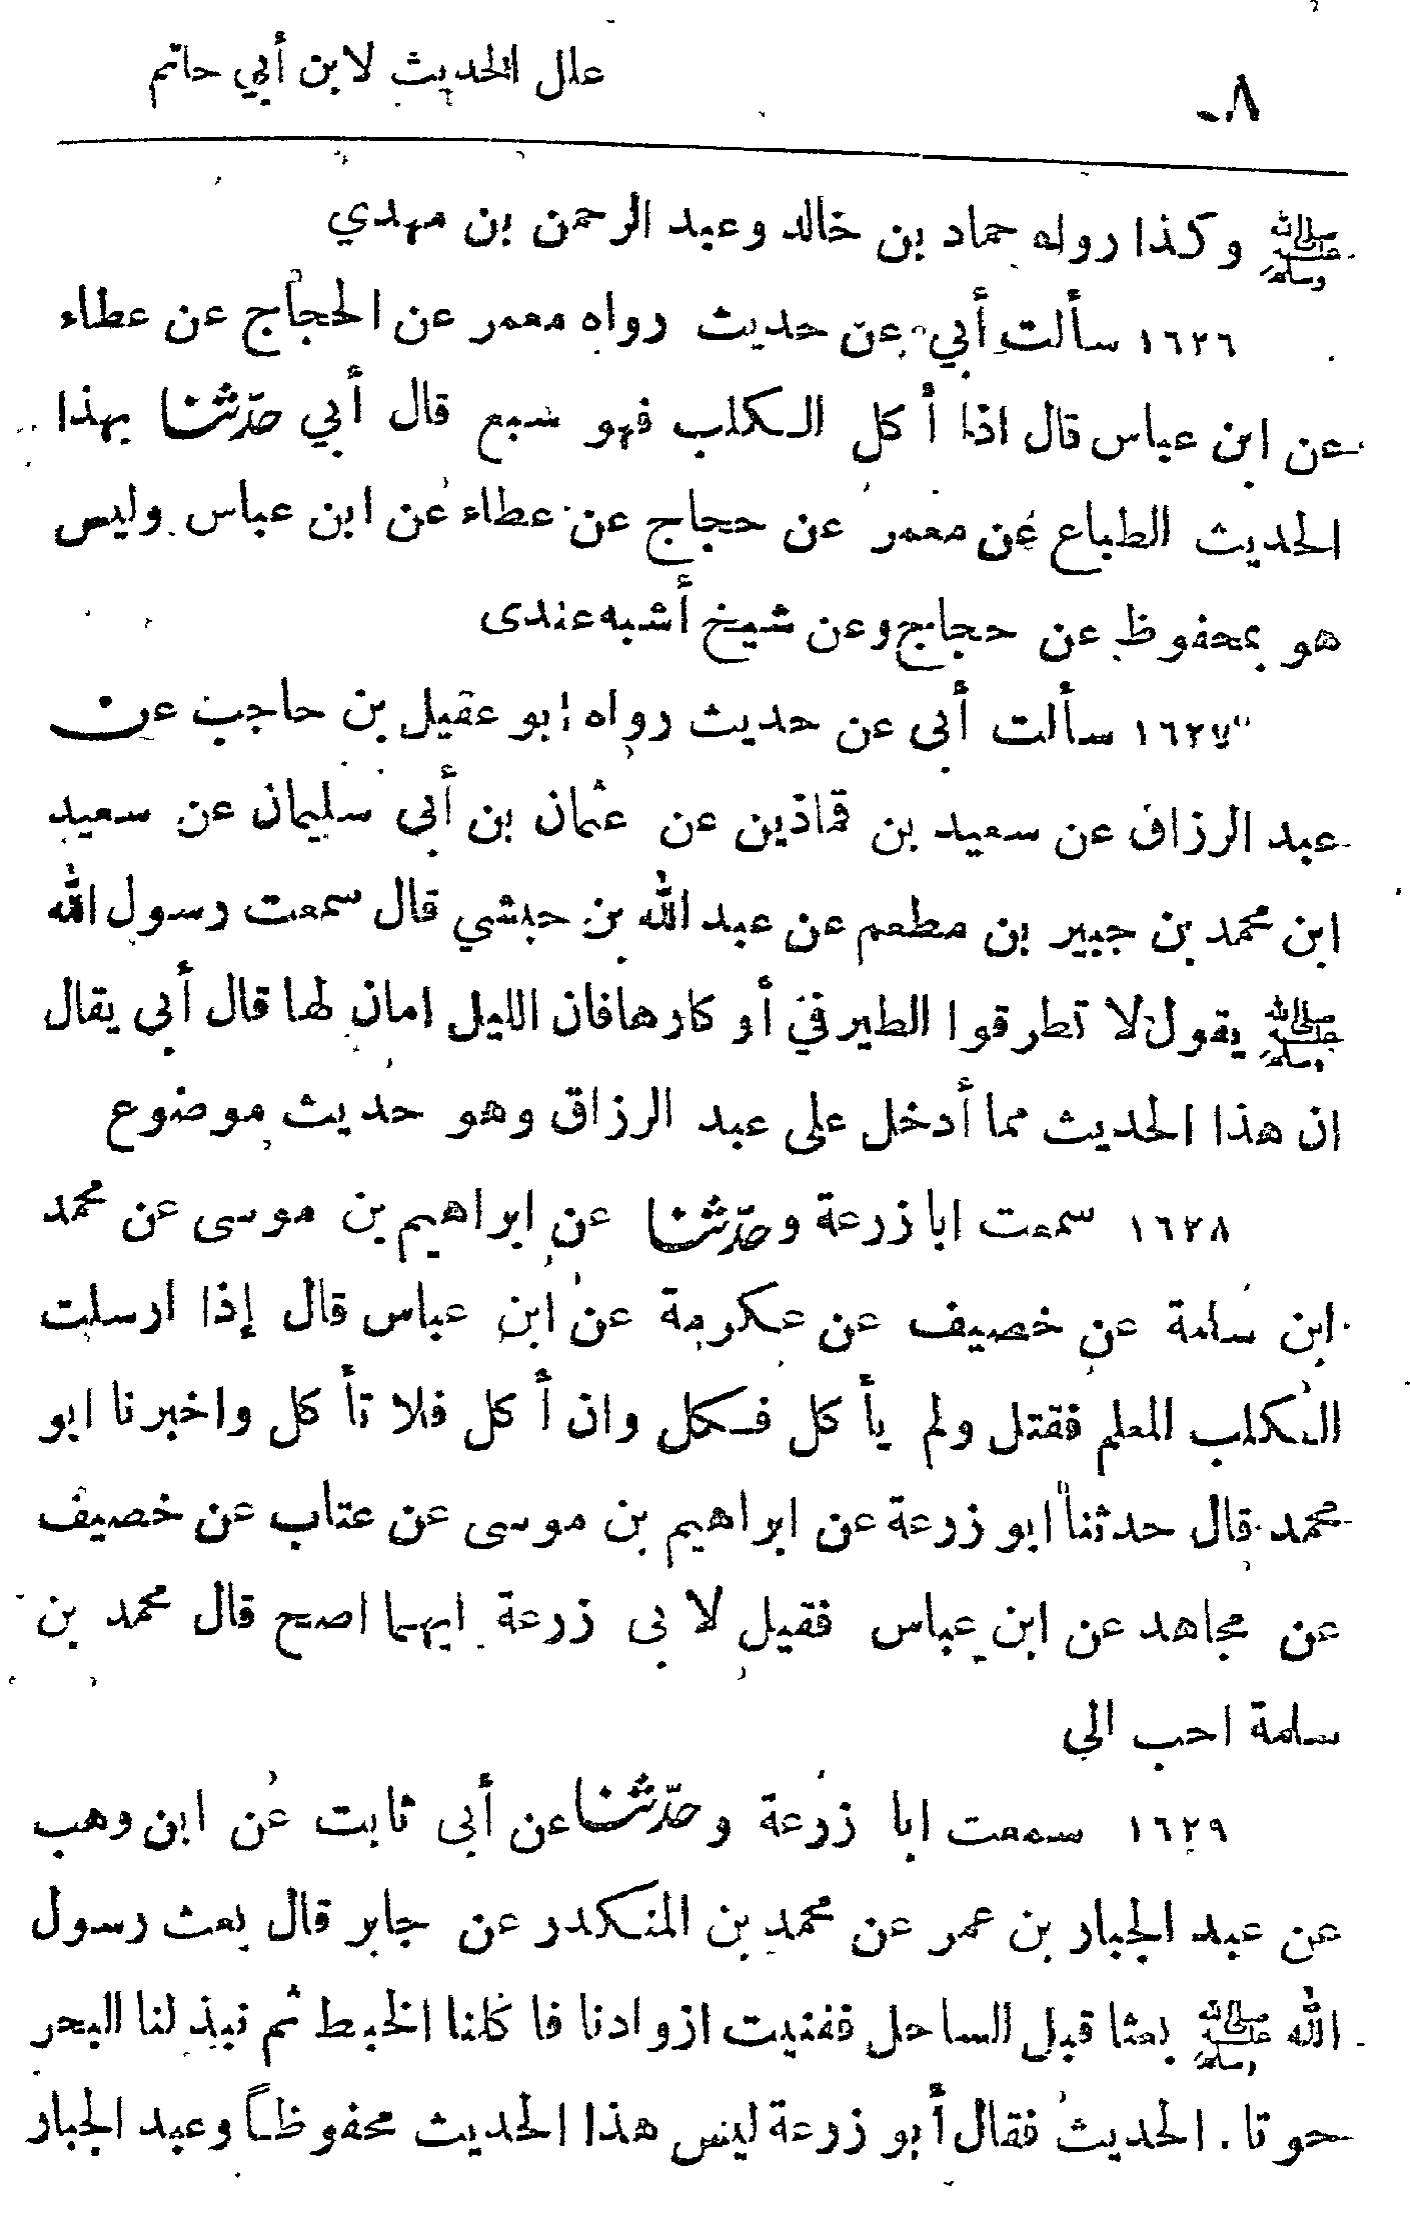 ٨
علل الحديث لابن أبي حاتم
ﷺ وكذا رواه حماد بن خالد وعبد الرحمن بن مهدي
١٦٢٦ سألت أبي عن حديث رواه معمر عن الحجاج عن عطاء
عن ابن عباس قال اذا أكل الكلب فهو سبع قال أبي حدّثنا بهذا
الحديث الطباع عن معمر عن حجاج عن عطاء عن ابن عباس وليس
هو بمحفوظ عن حجاج وعن شيخ أشبه عندى
١٦٢٧ سألت أبى عن حديث رواه ابو عقيل بن حاجب عن
عبد الرزاق عن سعيد بن قماذين عن عثمان بن أبي سليمان عن سعيد
ابن محمد بن جبير بن مطعم عن عبد الله بن حبشي قال سمعت رسول الله
ﷺ يقول لا تطرقوا الطير في أوكارها فان الليل امان لها قال أبي يقال
ان هذا الحديث مما أدخل على عبد الرزاق وهو حديث موضوع
١٦٢٨ سمعت ابا زرعة وحدّثنا عن ابراهيم بن موسى عن محمد
ابن سلمة عن خصيف عن عكرمة عن ابن عباس قال إذا ارسلت
الكلب المعلم فقتل ولم يأكل فكل وان أكل فلا تأكل واخبرنا ابو
محمد قال حدثنا ابو زرعة عن ابراهيم بن موسى عن عتاب عن خصيف
عن مجاهد عن ابن عباس فقيل لابى زرعة ايهما اصح قال محمد بن
سلمة احب الي
١٦٢٩ سمعت ابا زرعة وحدّثنا عن أبى ثابت عن ابن وهب
عن عبد الجبار بن عمر عن محمد بن المنكدر عن جابر قال بعث رسول
الله ﷺ بعثا قبل الساحل ففنيت ازوادنا فاكلنا الخبط ثم نبذ لنا البحر
حوتا . الحديث فقال أبو زرعة ليس هذا الحديث محفوظاً وعبد الجبار